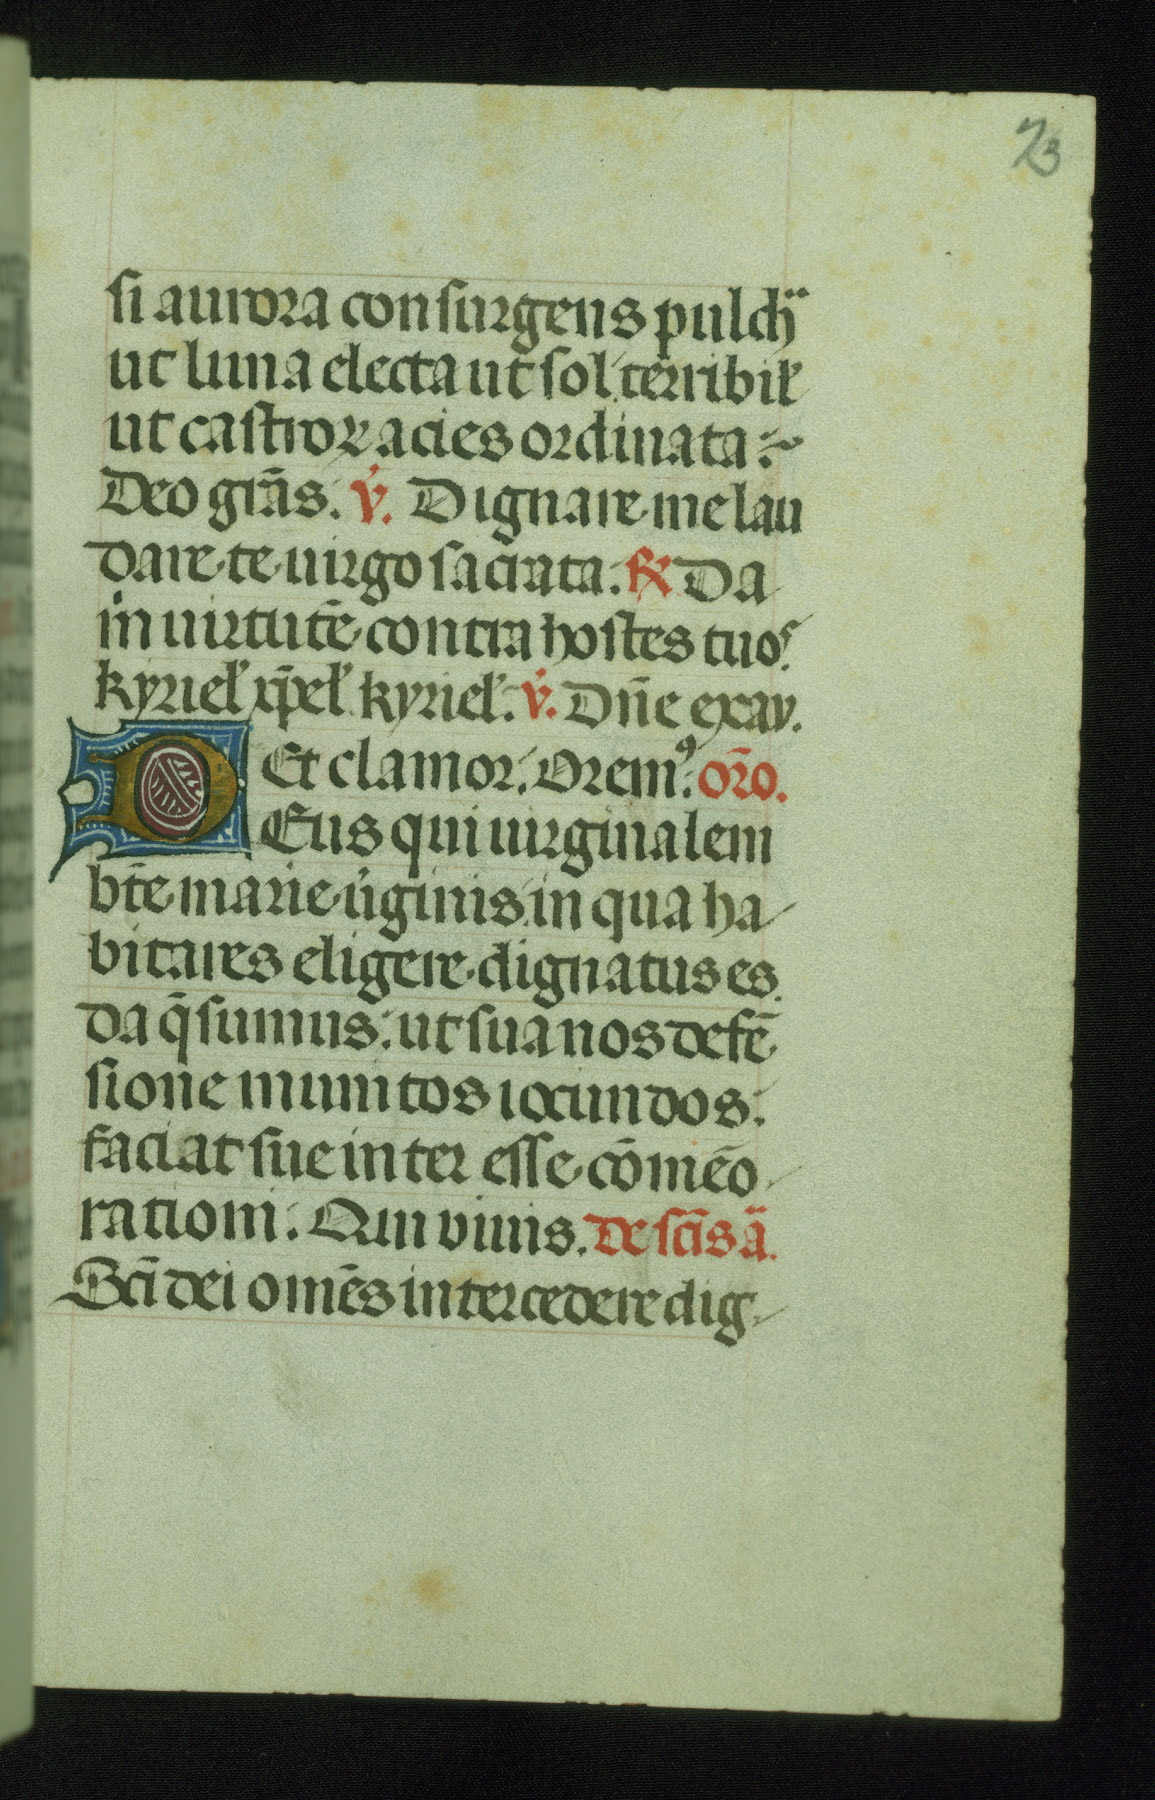 23
si aurora consurgens pulch̾
ut luna electa ut sol, terribił
ut castroꝝ acies ordinata.
Deo grãs. ℣. Dignare me lau
dare te uirgo sacrata. ℟ Da
m̊ uirtutẽ contra hostes tuos.
kyrieł xp̃eł kyrieł. ℣. Dñe exau.
Et clamor. Oremꝰ. orõ.
DEus qui uirginalem
bt̃e marie u̾ginis in qua ha
bitares eligere dignatus es.
da q̃sumus. ut sua nos defẽ
sione munitos iocundos.
faciat sue inter esse cõmẽo
rationi. Qui viuis. de sc̃is ã.
Sc̃i dei omẽs intercedere dig